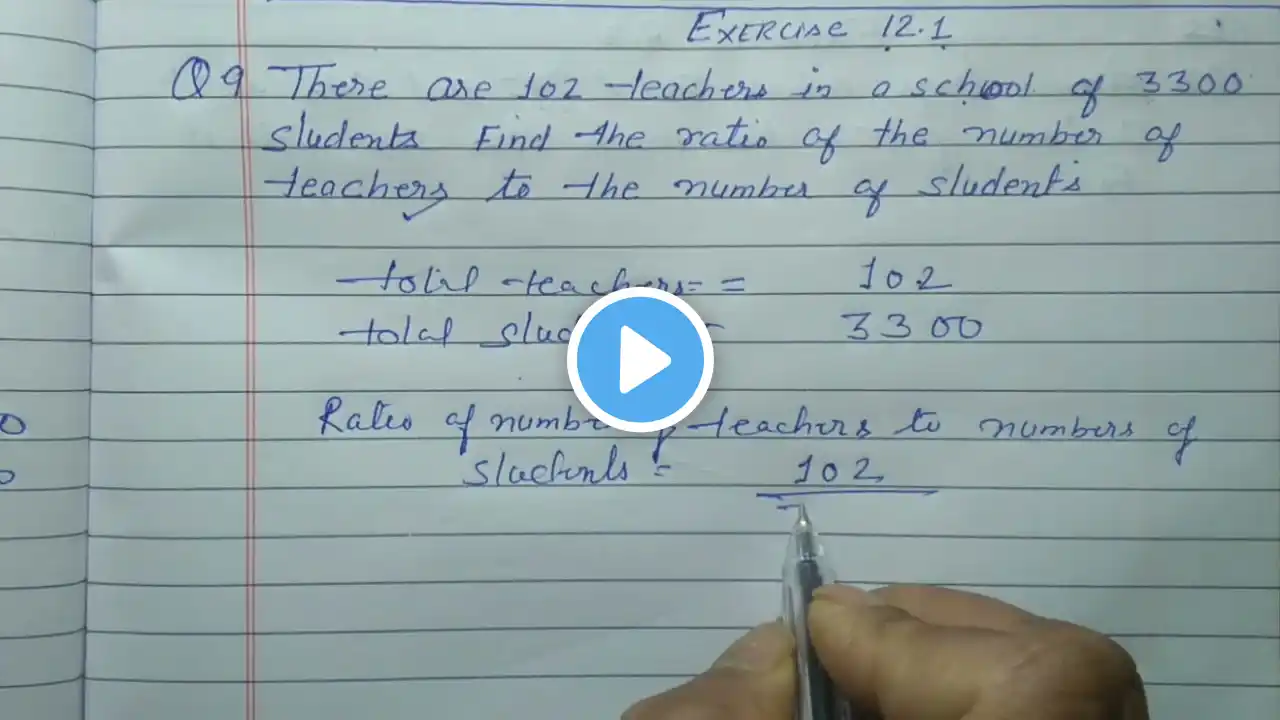 Exercise 12.1
Q 9 There are 102 teachers in a school of 3300
students Find the ratio of the number of
teachers to the number of students
total teachers = = 102
total 3300
Ratio of number of teachers to numbers of
students = 102